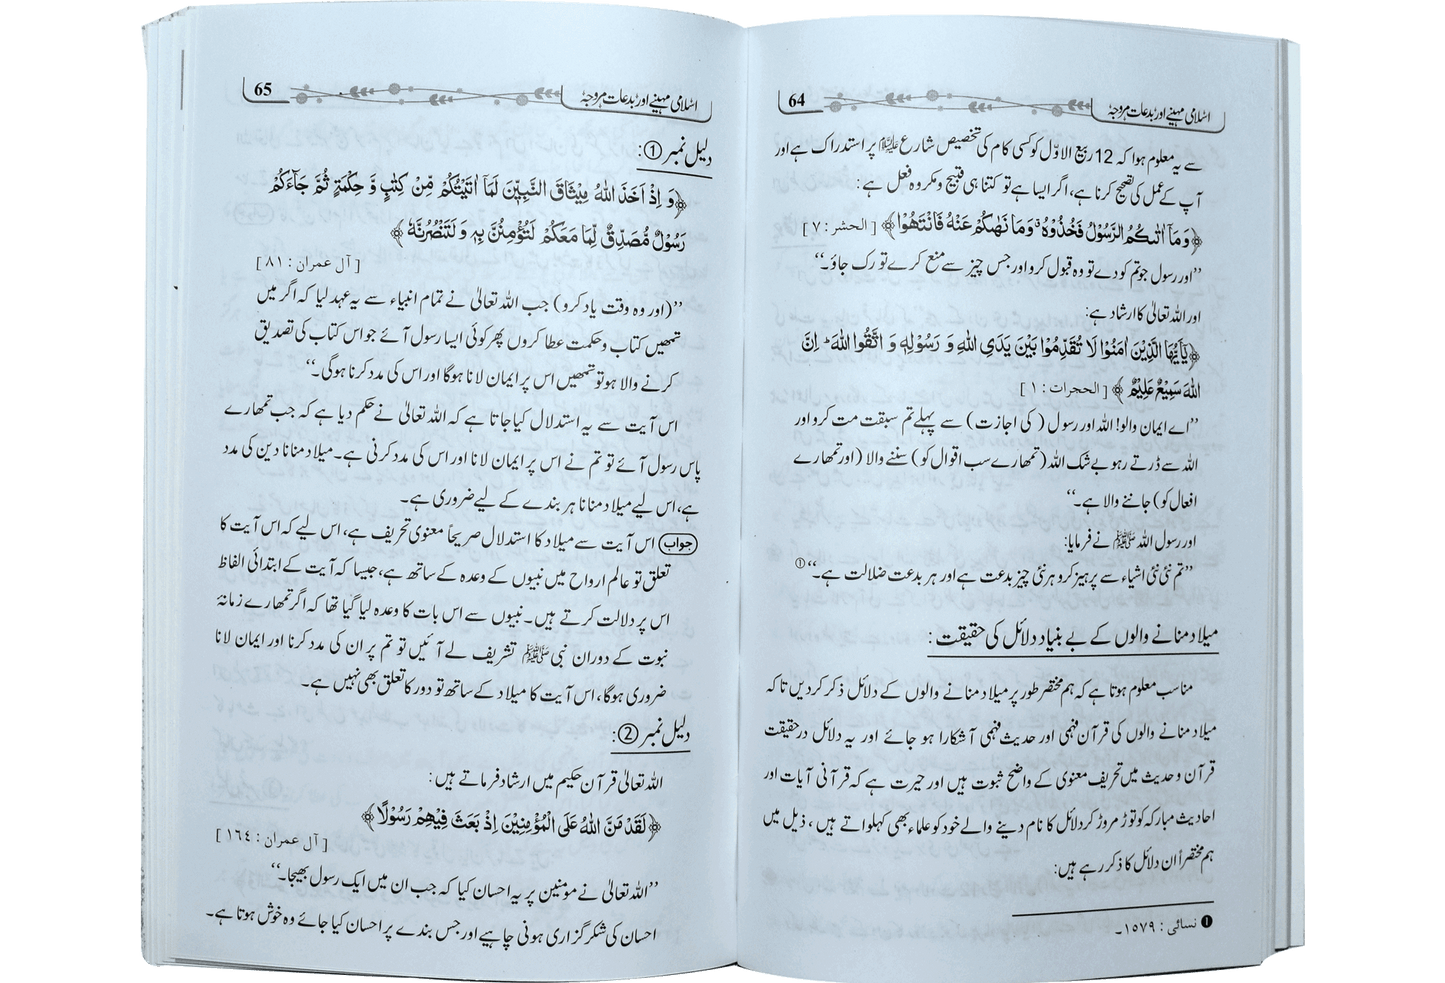 اسلامی مہینے اور بدعات مروجہ
64
سے یہ معلوم ہوا کہ 12 ربیع الاوّل کو کسی کام کی تخصیص شارع علیہ السلام پر استدراک ہے اور
آپ کے عمل کی تصحیح کرنا ہے، اگر ایسا ہے تو کتنا ہی قبیح و مکروہ فعل ہے:
﴿وَ مَاۤ اٰتٰىكُمُ الرَّسُوْلُ فَخُذُوْهُ ۗ وَ مَا نَهٰىكُمْ عَنْهُ فَانْتَهُوْا﴾ [الحشر : ٧]
’’اور رسول جو تم کو دے تو وہ قبول کرو اور جس چیز سے منع کرے تو رک جاؤ۔‘‘
اور اللہ تعالیٰ کا ارشاد ہے:
﴿یٰۤاَیُّهَا الَّذِیْنَ اٰمَنُوْا لَا تُقَدِّمُوْا بَیْنَ یَدَیِ اللّٰهِ وَ رَسُوْلِهٖ وَ اتَّقُوا اللّٰهَ ؕ اِنَّ
اللّٰهَ سَمِیْعٌ عَلِیْمٌ ﴾ [الحجرات : ١]
’’اے ایمان والو! اللہ اور رسول ( کی اجازت) سے پہلے تم سبقت مت کرو اور
اللہ سے ڈرتے رہو بے شک اللہ (تمھارے سب اقوال کو) سننے والا (اور تمھارے
افعال کو) جاننے والا ہے۔‘‘
اور رسول اللہ ﷺ نے فرمایا:
’’تم نئی نئی اشیاء سے پرہیز کرو ہر نئی چیز بدعت ہے اور ہر بدعت ضلالت ہے۔‘‘ ①
میلاد منانے والوں کے بے بنیاد دلائل کی حقیقت :
مناسب معلوم ہوتا ہے کہ ہم مختصر طور پر میلاد منانے والوں کے دلائل ذکر کر دیں تا کہ
میلاد منانے والوں کی قرآن فہمی اور حدیث فہمی آشکارا ہو جائے اور یہ دلائل درحقیقت
قرآن و حدیث میں تحریف معنوی کے واضح ثبوت ہیں اور حیرت ہے کہ قرآنی آیات اور
احادیث مبارکہ کو توڑ مروڑ کر دلائل کا نام دینے والے خود کو علماء بھی کہلواتے ہیں ، ذیل میں
ہم مختصراً ان دلائل کا ذکر رہے ہیں:
❶ نسائی : ١٥٧٩۔
اسلامی مہینے اور بدعات مروجہ
65
دلیل نمبر ①:
﴿وَ اِذْ اَخَذَ اللّٰهُ مِیْثَاقَ النَّبِیّٖنَ لَمَاۤ اٰتَیْتُكُمْ مِّنْ كِتٰبٍ وَّ حِكْمَةٍ ثُمَّ جَآءَكُمْ
رَسُوْلٌ مُّصَدِّقٌ لِّمَا مَعَكُمْ لَتُؤْمِنُنَّ بِهٖ وَ لَتَنْصُرُنَّهٗ ﴾
[آل عمران : ٨١]
’’(اور وہ وقت یاد کرو) جب اللہ تعالیٰ نے تمام انبیاء سے یہ عہد لیا کہ اگر میں
تمھیں کتاب و حکمت عطا کروں پھر کوئی ایسا رسول آئے جو اس کتاب کی تصدیق
کرنے والا ہو تو تمھیں اس پر ایمان لانا ہوگا اور اس کی مدد کرنا ہوگی۔‘‘
اس آیت سے یہ استدلال کیا جاتا ہے کہ اللہ تعالیٰ نے حکم دیا ہے کہ جب تمھارے
پاس رسول آئے تو تم نے اس پر ایمان لانا اور اس کی مدد کرنی ہے۔ میلاد منانا دین کی مدد
ہے، اس لیے میلاد منانا ہر بندے کے لیے ضروری ہے۔
جواب اس آیت سے میلاد کا استدلال صریحاً معنوی تحریف ہے، اس لیے کہ اس آیت کا
تعلق تو عالم ارواح میں نبیوں کے وعدہ کے ساتھ ہے، جیسا کہ آیت کے ابتدائی الفاظ
اس پر دلالت کرتے ہیں۔ نبیوں سے اس بات کا وعدہ لیا گیا تھا کہ اگر تمھارے زمانۂ
نبوت کے دوران نبی ﷺ تشریف لے آئیں تو تم پر ان کی مدد کرنا اور ایمان لانا
ضروری ہوگا، اس آیت کا میلاد کے ساتھ تو دور کا تعلق بھی نہیں ہے۔
دلیل نمبر ②:
اللہ تعالیٰ قرآن حکیم میں ارشاد فرماتے ہیں:
﴿لَقَدْ مَنَّ اللّٰهُ عَلَى الْمُؤْمِنِیْنَ اِذْ بَعَثَ فِیْهِمْ رَسُوْلًا﴾
[آل عمران : ١٦٤]
’’اللہ تعالیٰ نے مؤمنین پر یہ احسان کیا کہ جب ان میں ایک رسول بھیجا۔‘‘
احسان کی شکر گزاری ہونی چاہیے اور جس بندے پر احسان کیا جائے وہ خوش ہوتا ہے۔